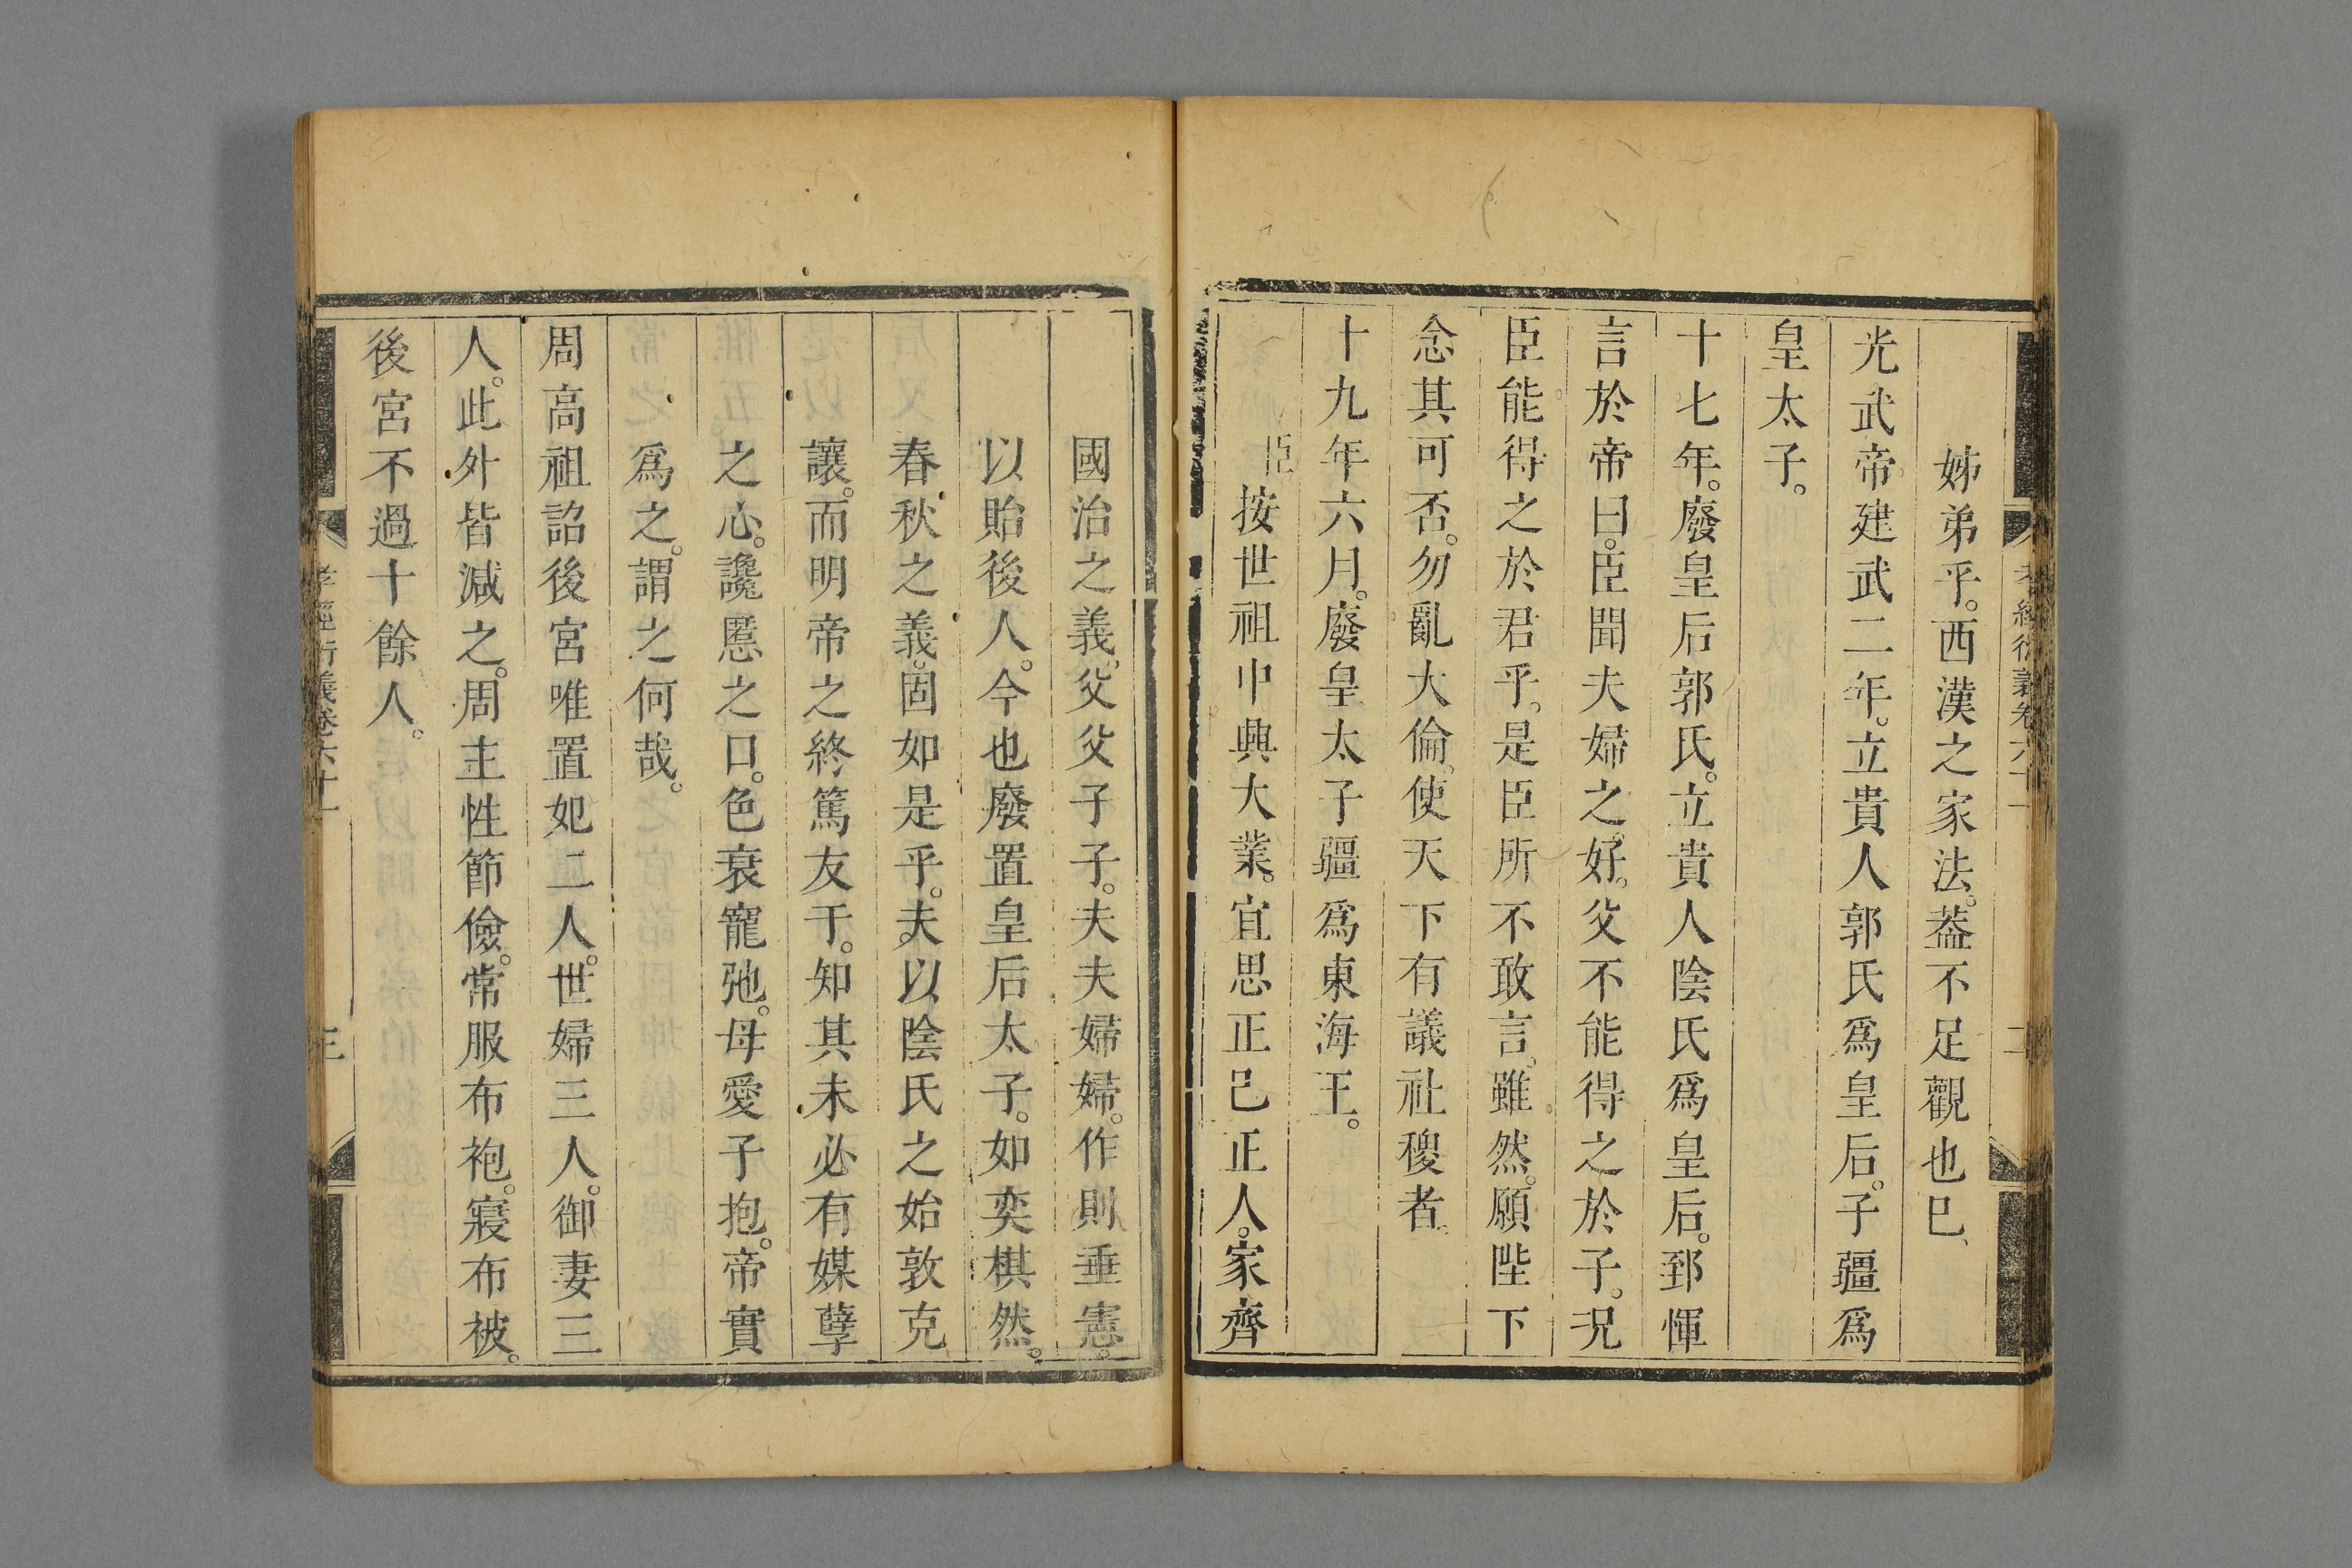 孝經衍義卷六十一
二
姊弟乎。西漢之家法。葢不足觀也巳
光武帝建武二年。立貴人郭氏爲皇后。子疆爲
皇太子。
十七年。廢皇后郭氏。立貴人陰氏爲皇后。郅惲
言於帝曰。臣聞夫婦之好。父不能得之於子。况
臣能得之於君乎。是臣所不敢言。雖然。願陛下
念其可否。勿亂大倫。使天下有議社稷者
十九年六月。廢皇太子疆爲東海王。
臣按世祖中興大業。宜思正己正人。家齊
國治之義。父父子子。夫夫婦婦。作則垂憲。
以貽後人。今也廢置皇后太子。如奕棋然。
春秋之義。固如是乎。夫以陰氏之始敦克
讓。而明帝之終篤友于。知其未必有媒孽
之心。讒慝之口。色衰寵弛。母愛子抱。帝實
爲之。謂之何哉。
周高祖詔後宮唯置妃二人。世婦三人。御妻三
人。此外皆減之。周主性節儉。常服布袍。寢布被。
後宮不過十餘人。
孝經衍義卷六十一
三